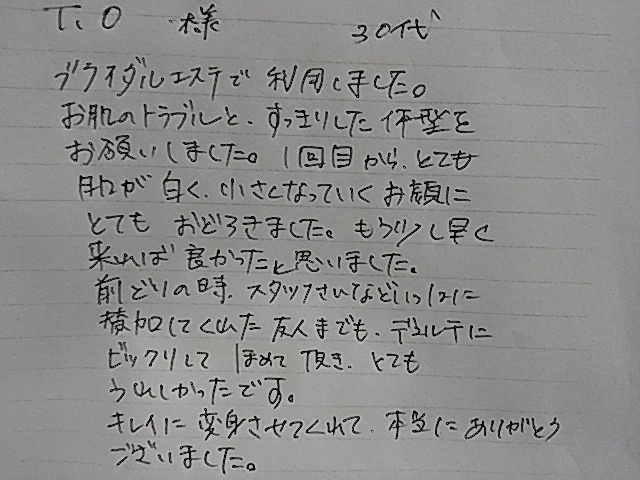 T.O 様 30代
ブライダルエステで 利用しました。
お肌のトラブルと、すっきりした 体型を
お願いしました。1回目から、とても
肌が 白く、小さくなっていく お顔に
とても おどろきました。もう少し早く
来れば 良かったと思いました。
前どりの時、スタッフさんなどいっしょに
参加してくれた 友人までも、デコルテに
ビックリして ほめて 頂き、とても
うれしかったです。
キレイに 変身させてくれて、本当に ありがとう
ございました。